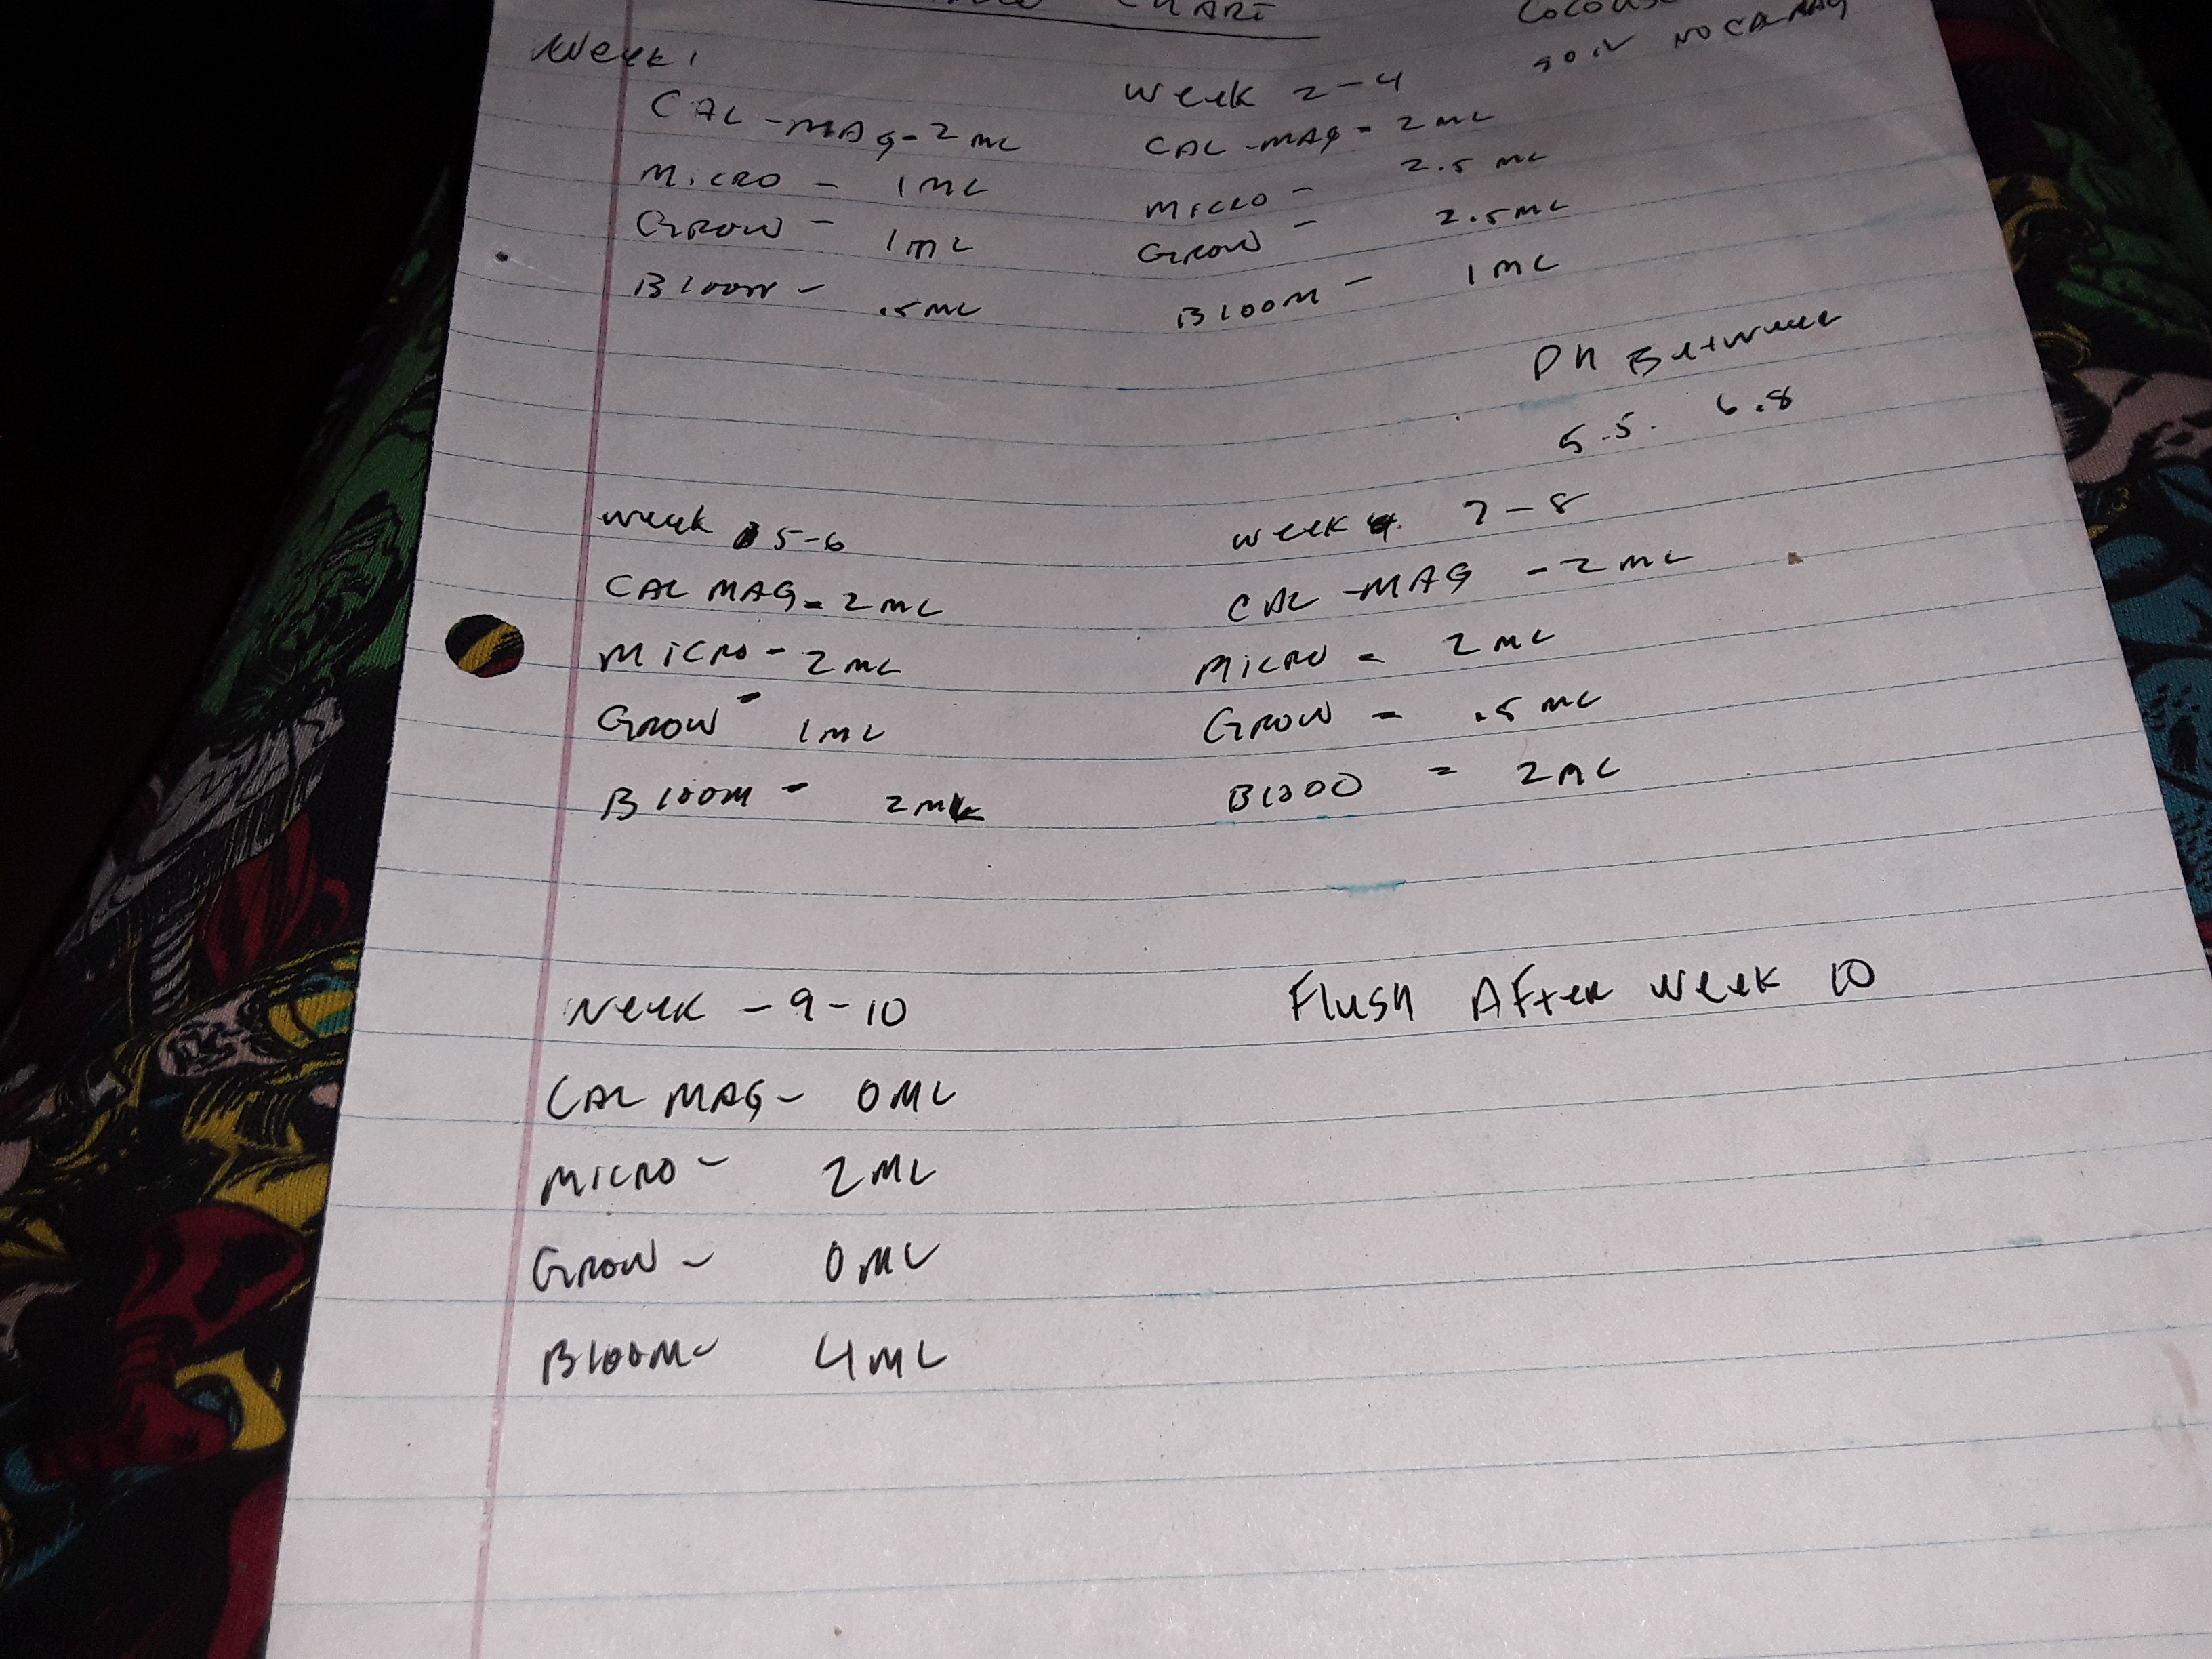 CHART
Week 1
CAL-MAG-2 ML
MICRO - 1ML
GROW - 1ML
BLOOM - .5ML
Week 2-4
CAL-MAG-2ML
MICRO - 2.5 ML
GROW - 2.5ML
BLOOM - 1ML
SOIL NO CALMAG
PH Between
5.5. 6.8
week 5-6
CAL MAG-2ML
MICRO-2ML
GROW- 1ML
BLOOM- 2ML
week 7-8
CAL-MAG -2ML
MICRO - 2ML
GROW - .5ML
BLOOO - 2ML
Week -9-10
CAL MAG- 0ML
MICRO- 2ML
GROW- 0ML
BLOOM- 4ML
Flush AFter week 10